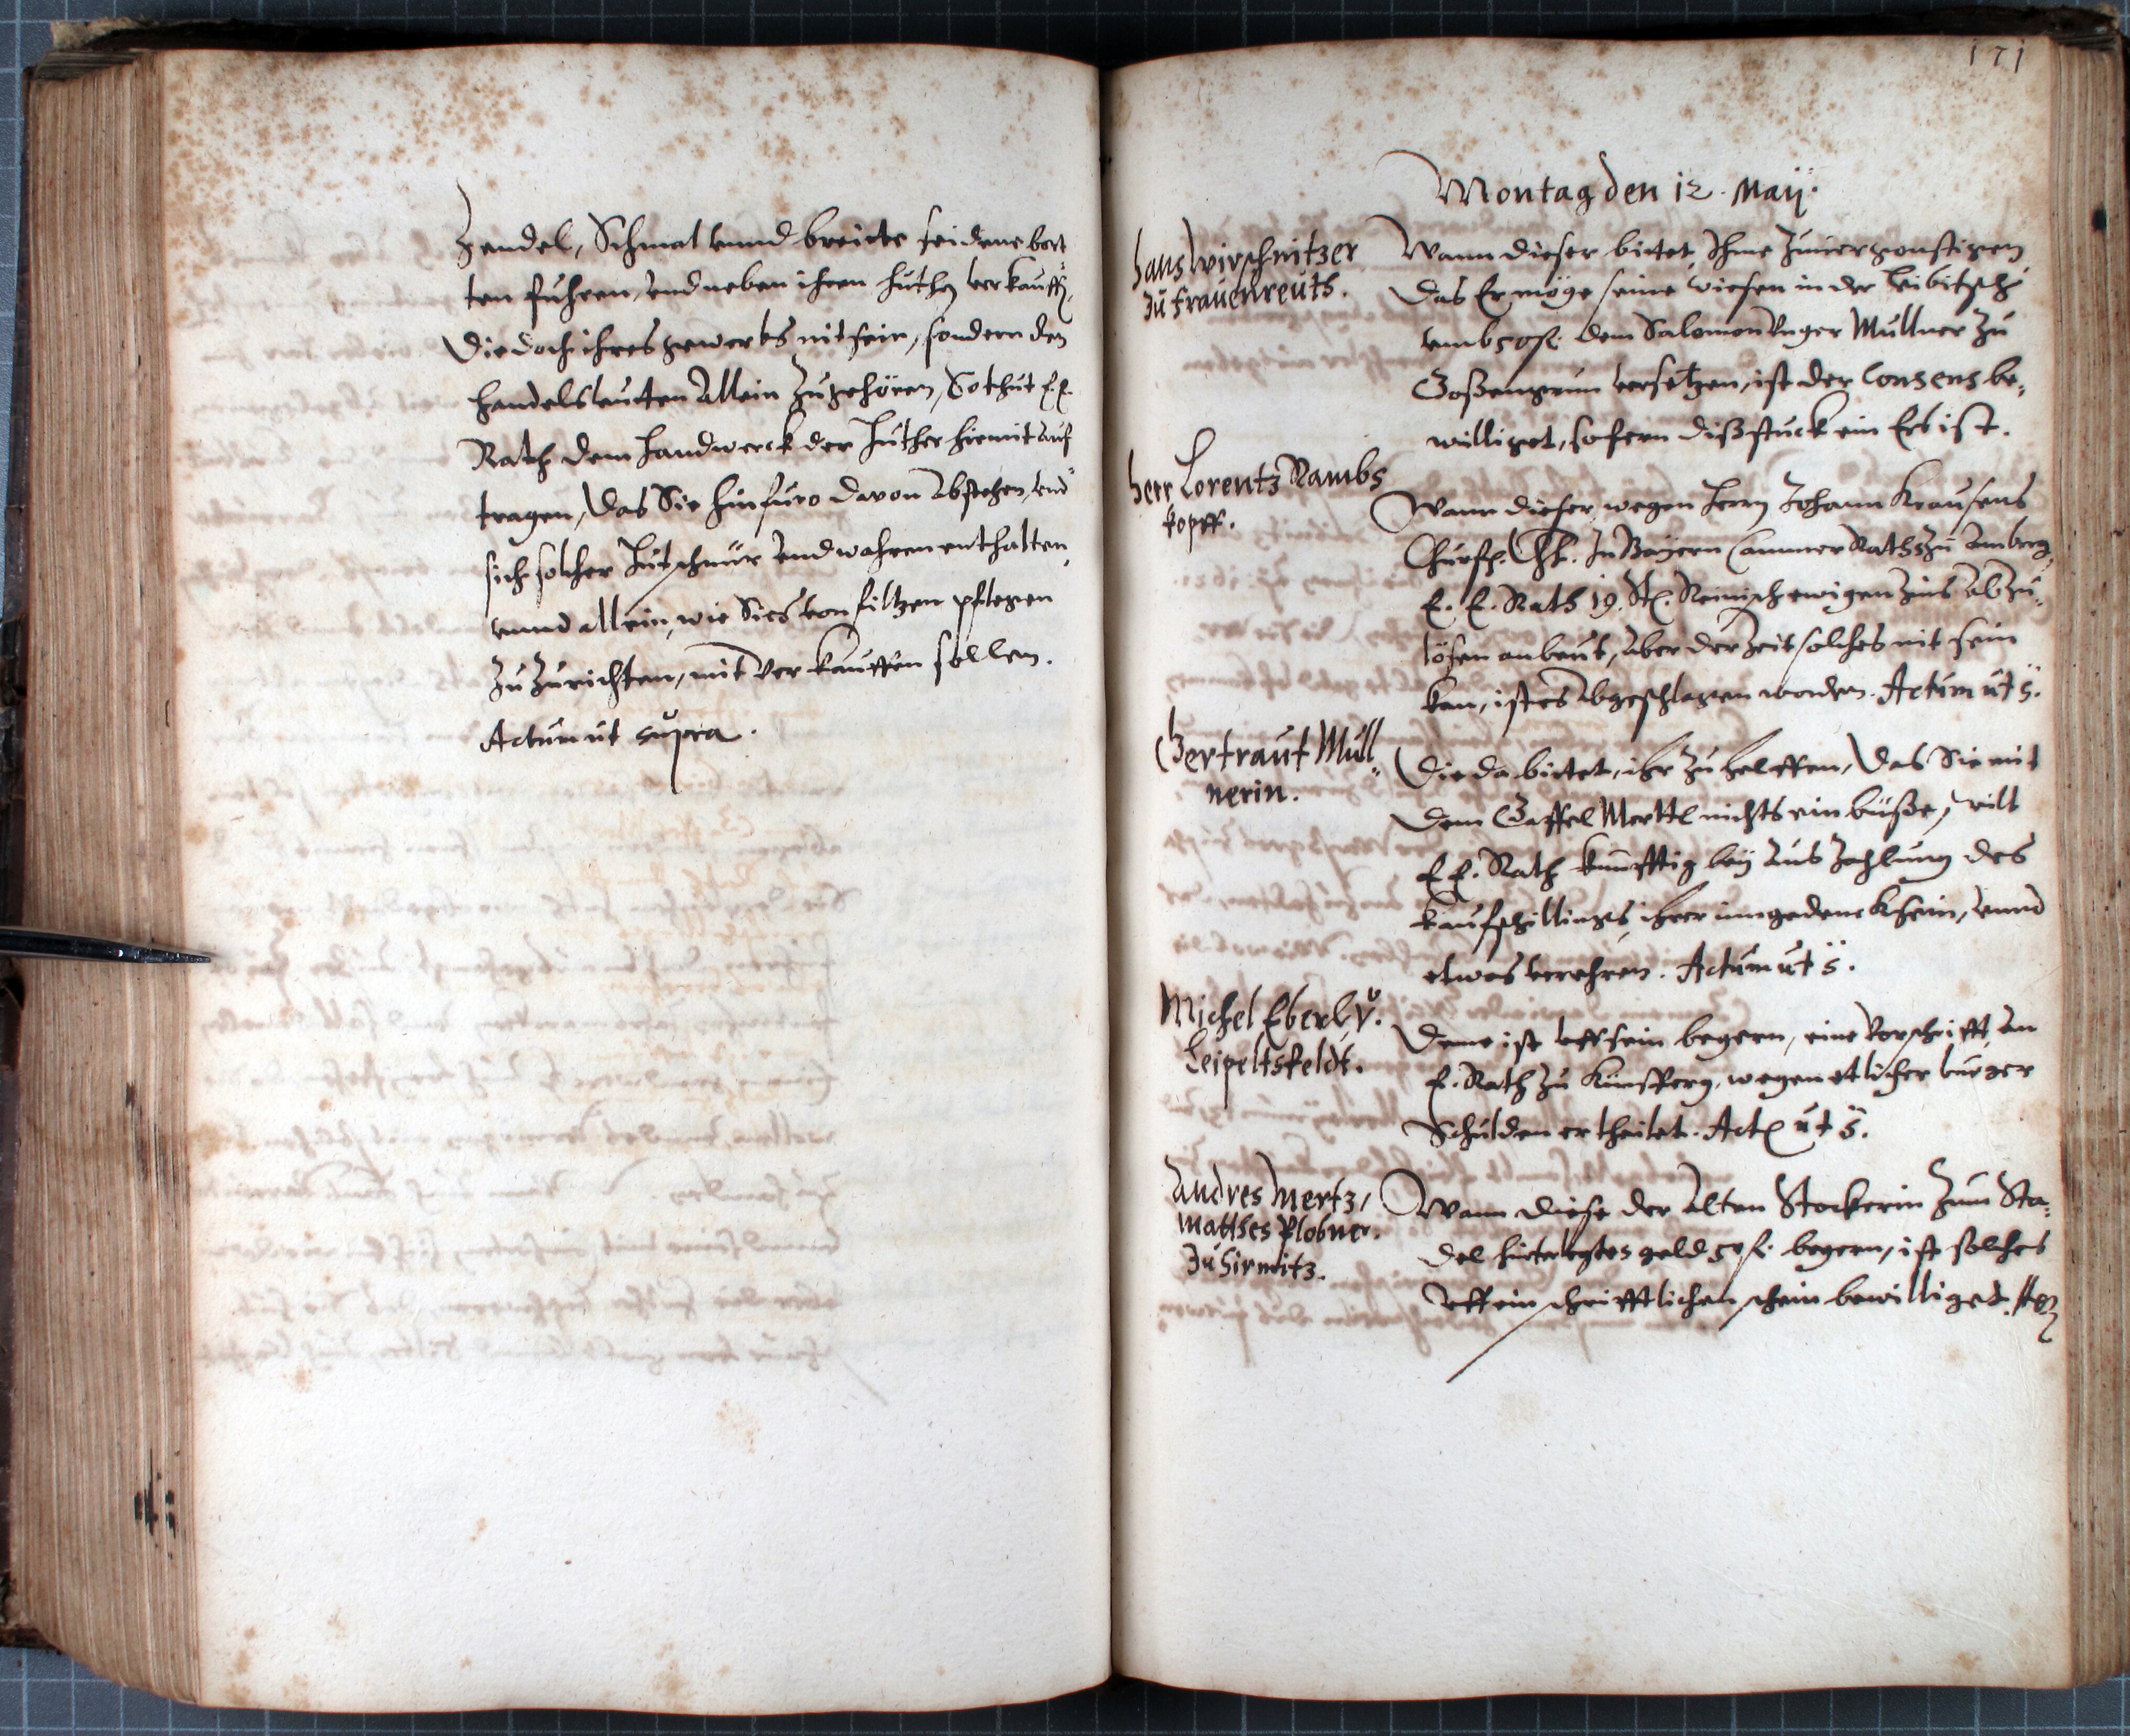 Zendel, Schmal vnnd breidte seidene bort
ten fuhren, vnd neben ihren huthen verkauffen,
die doch ihres gewerbs nit sein, sondern den
handelsleutten Allein zugehören, So thut E. E.
Rath dem handwerck der huther hiemit auf
tragen, das Sie hinfuro davon abstehen, vnd
sich solcher hutschnür vnd wahren enthalten,
vnnd allein, wie Sies von filtzen pflegen
zuzurichten, mit verkauffen sollen.
Actum ut supra.
171
Montag den 12. Maij.
Hans Wirschnitzer
zu Frauenreuth.
Wann dieser bittet, Ihme zuvergonstigen
das Er möge seine wiesen in der Leibitsch
umb 50 fl. dem Salomon Unger Mullner zu
Goßengrun versetzen, ist der Consens be,
williget, sofern diß stuck ein Erb ist.
Herr Lorentz Rambs
kopff.
Wann dieser, wegen herrn Johann Krausens
Churfl. Dht. In Bayern Cammer Raths zu Amberg,
E. E. Rath 19. Reinisch ewigen Zins abzu,
lösen anbeut, aber der Zeit solches nit sein
kan, ist es Abgeschlagen worden. Actum ut s.
Gertraut Mull,
nerin.
Die da bittet, ihr zu helffen, das Sie mit
dem Gaffel Merttl nichts einbüße, will
E. E. Rath kunfftig bey Auszahlung des
kaufschillings, ihrer inngedenck sein, vnnd
etwas verehren. Actum ut s.
Michel Eberl v.
Leipeltsfeldt.
Deme ist uff sein begern, eine Vorschrifft, an
E. Rath zu Künsperg, wegen etlicher burger
Schulden ertheilet. Act. ut s.
Andres Mertz,
Matthes Plobner.
zu Sirmitz.
Wann diese der Alten Stockerin zum Sta,
del hinterlegtes geld 50 fl. begern, ist solches
uff ein schrifftlichen schein bewilliget.